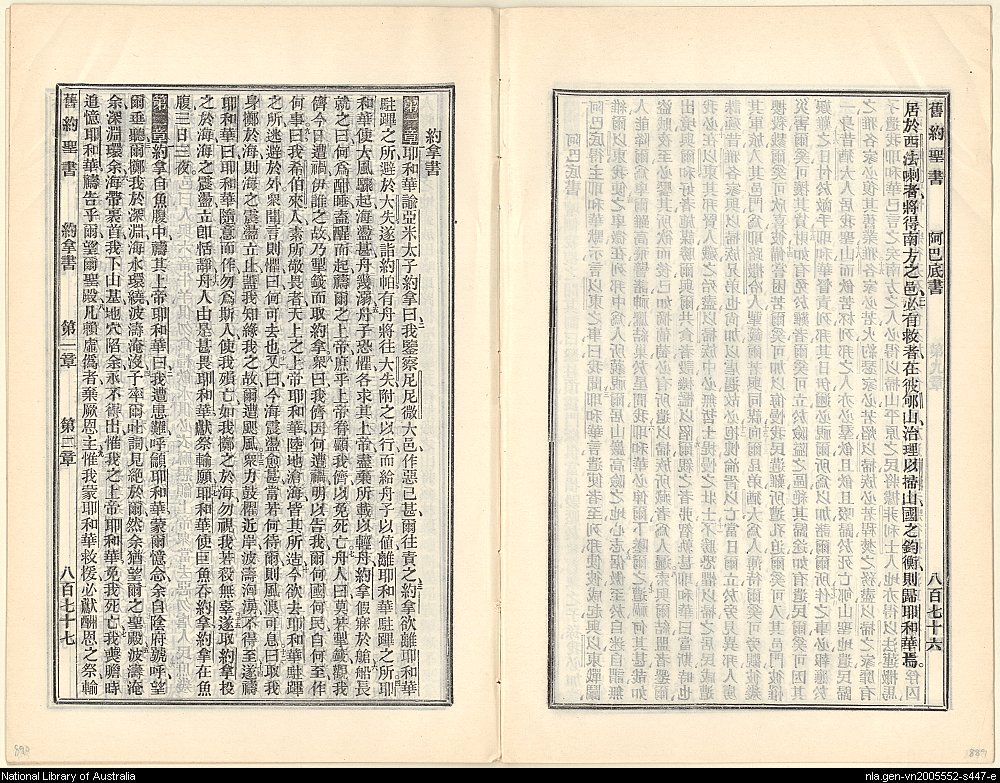 舊約聖書 阿巴底書 八百七十六
居於西法喇者、將得南方之邑、必有救者在彼郇山治理、以掃山國之鈞衡、則歸耶和華焉。
約拿書
第一章 耶和華諭亞米太子約拿曰、我鑒察尼尼微大邑、作惡已甚、爾往責之、約拿欲離耶和華
駐蹕之所、避於大失、遂詣約帕、有舟將往大失、附之以行、而給舟子以値、離耶和華駐蹕之所、耶
和華使大風驟起、海盪甚、舟幾溺、舟子恐懼、各求其上帝、盡棄所載以輕舟、約拿假寐於艙、船長
就之曰、何爲酣睡、盍醒而起、禱爾之上帝、庶乎上帝眷顧我儕、以免死亡、舟人曰、莫若掣籤、觀我
儕今日遭禍、伊誰之故、乃掣籤而取約拿、衆曰、我儕因何遭禍、明以告我、爾何國何民、自何至、作
何事、曰、我希伯來人、素所敬畏者、天上之上帝耶和華、陸地滄海、皆其所造、今欲去耶和華駐蹕
之所、逃避於外、衆聞言則懼、曰、何可去也、又曰、今海震盪愈甚、當若何待爾、則風浪可息、曰、取我
身擲於海、則海之震盪立止、蓋我知緣我之故、爾遭颶風、衆力鼓櫂近岸、波濤洶湧、不得至、遂禱
耶和華曰、耶和華隨意而作、勿爲斯人使我殞亡、如我擲之於海、勿視我若殺無辜、遂取約拿投
之於海、海之震盪、立卽恬靜、舟人由是甚畏耶和華、獻祭輸願、耶和華使巨魚吞約拿、約拿在魚
腹三日三夜、
第二章 約拿自魚腹中禱其上帝耶和華曰、我遭患難、呼籲耶和華、蒙爾憶念、余自陰府號呼、望
爾垂聽、爾擲我於深淵、海水環繞、波濤淹沒、予率爾叱詞、見絕於爾、然余猶望爾之聖殿、波濤淹
余、深淵環余、海帶裹首、我下山基、地穴陷余、永不得出、惟我之上帝耶和華、免我死亡、我喪膽時、
追憶耶和華、禱告乎爾、望爾聖殿、凡賴虛僞者、棄厥恩主、惟我蒙耶和華救援、必獻酬恩之祭、輸
舊約聖書 約拿書 第一章 第二章 八百七十七
889
National Library of Australia
nla.gen-vn2005552-s447-e